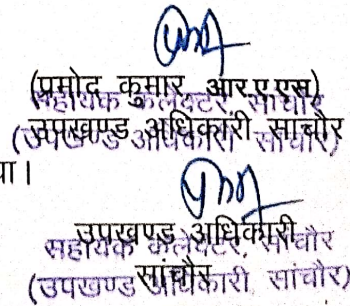 (प्रमोद कुमार आर.ए.एस)
सहायक कलेक्टर, सांचौर
उपखण्ड अधिकारी सांचौर
(उपखण्ड अधिकारी, सांचौर)
या।
उपखण्ड अधिकारी
सहायक कलेक्टर, सांचौर
सांचौर
(उपखण्ड अधिकारी, सांचौर)